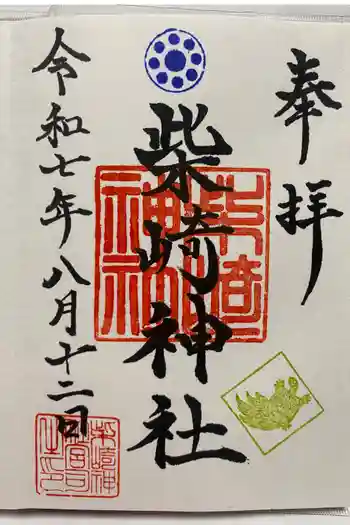 奉拝
柴崎神社
柴崎神社
令和七年八月十二日
柴崎神社宮司之印